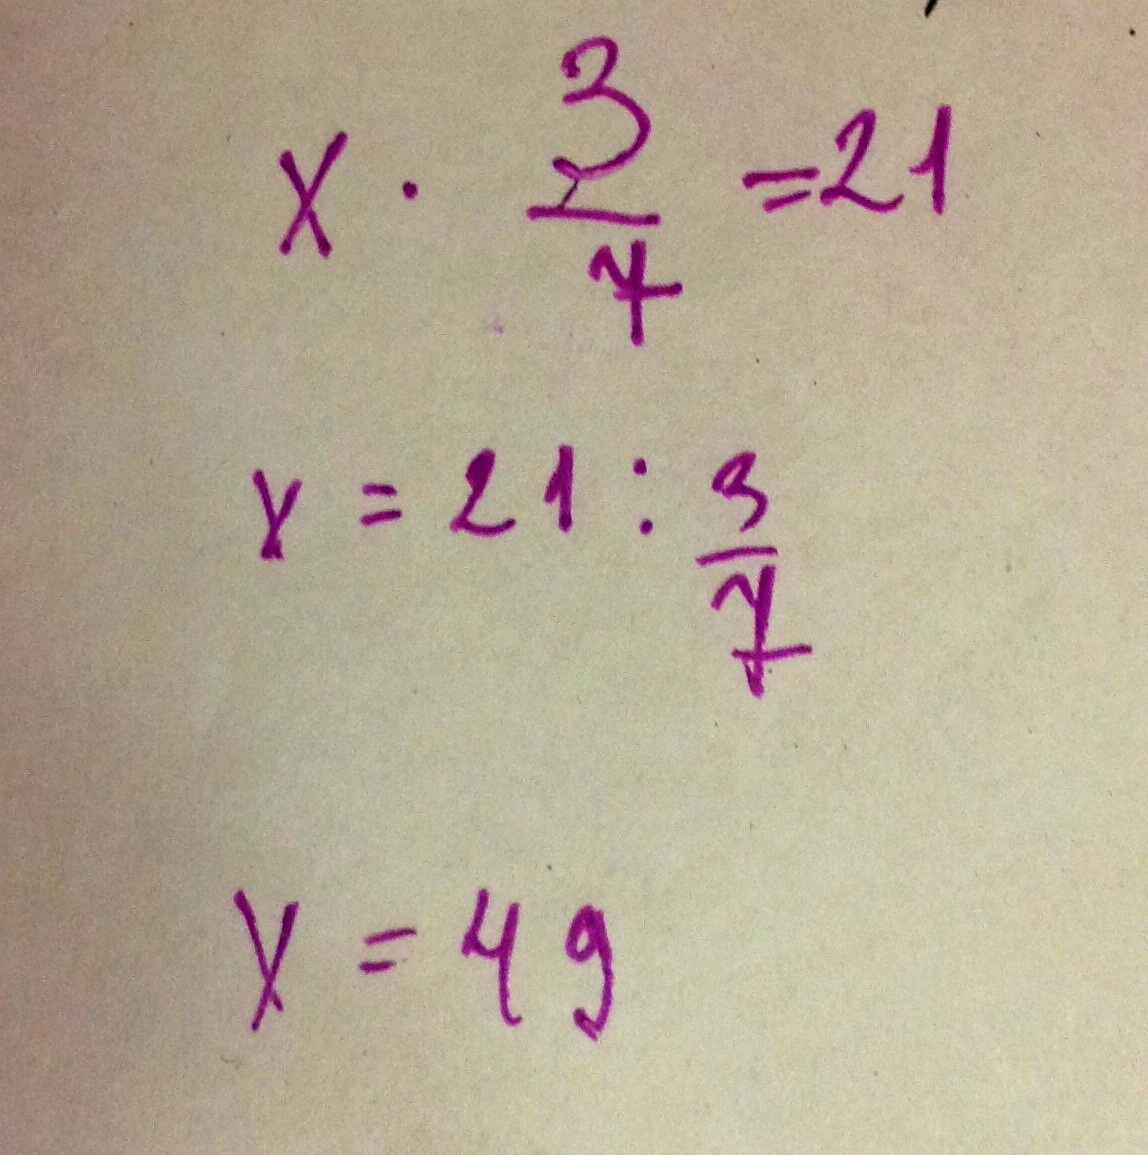 x · 3/7 = 21
x = 21 : 3/7
x = 49